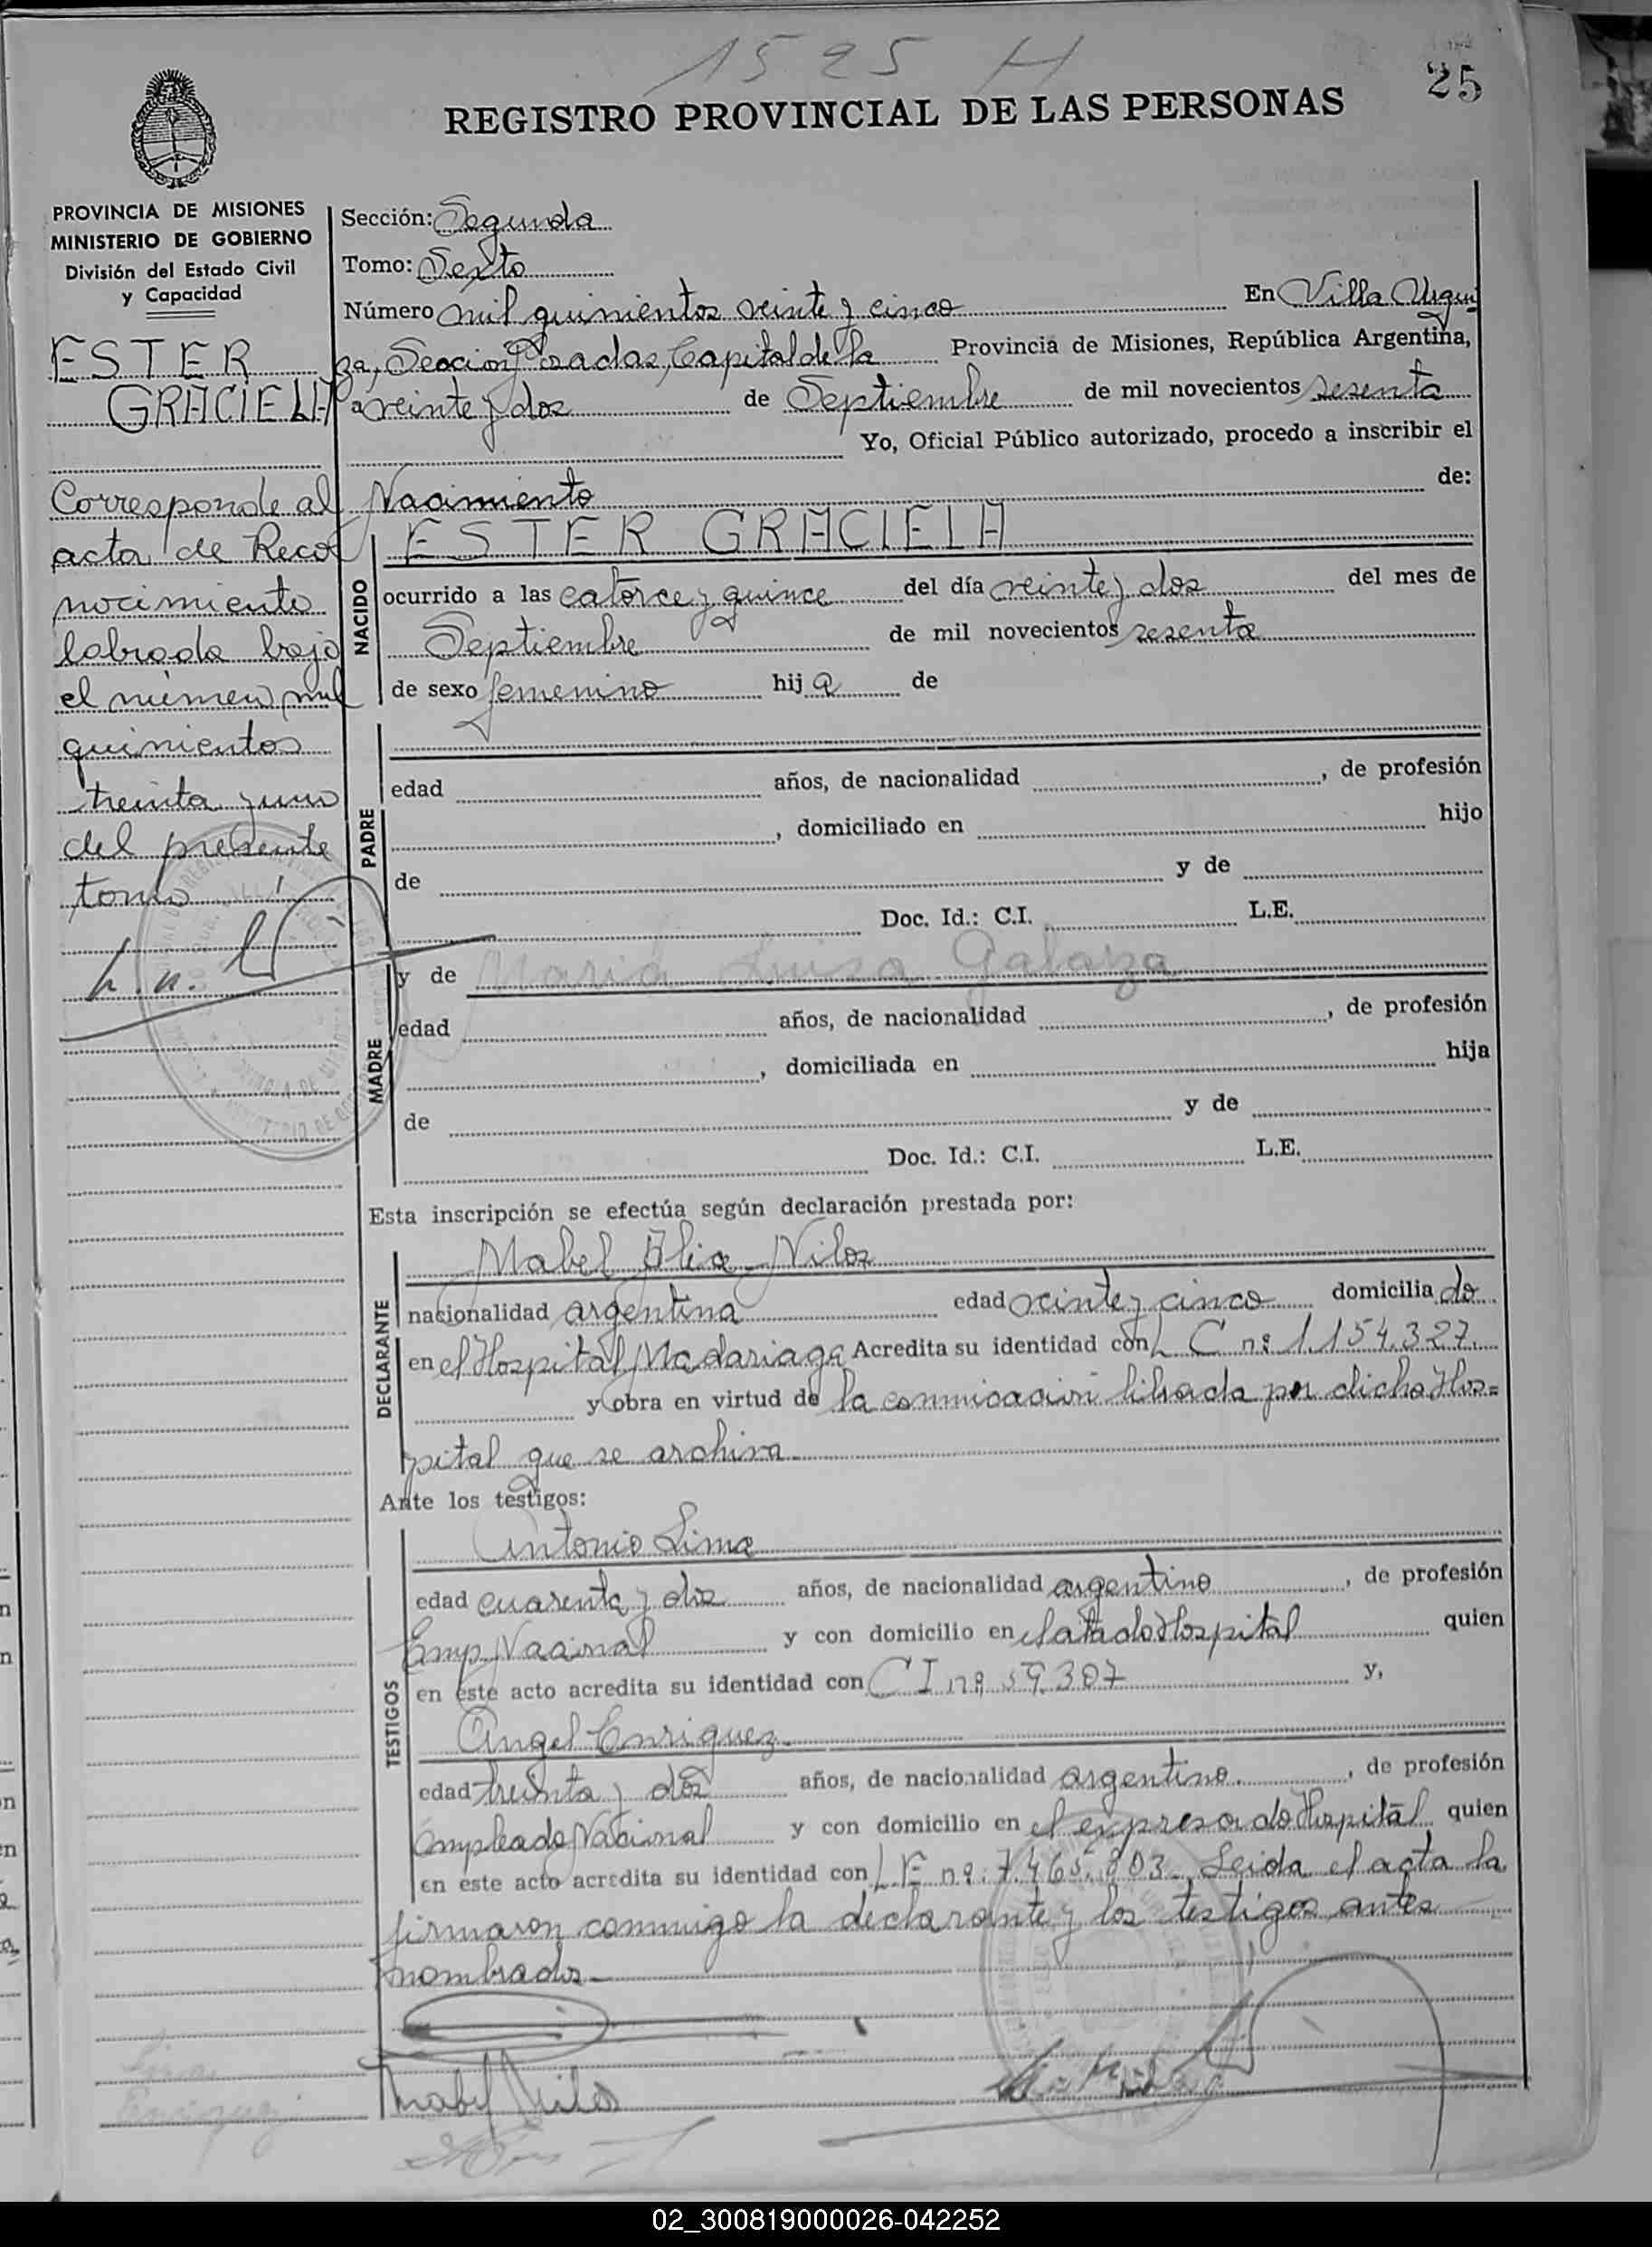 1525 H
25
REGISTRO PROVINCIAL DE LAS PERSONAS
PROVINCIA DE MISIONES
MINISTERIO DE GOBIERNO
División del Estado Civil
y Capacidad
ESTER
GRACIELA
Corresponde al
acta de Reco
nocimiento
labrada bajo
el número mil
quinientos
treinta y uno
del presente
tomo
Sección: Segunda
Tomo: Sexto
Número mil quinientos veinte y cinco En Villa Urqui
za, Seccion Posadas, Capital de la Provincia de Misiones, República Argentina,
a veinte y dos de Septiembre de mil novecientos sesenta
Yo, Oficial Público autorizado, procedo a inscribir el
Nacimiento de:
NACIDO
ESTER GRACIELA
ocurrido a las catorce y quince del día veinte y dos del mes de
Septiembre de mil novecientos sesenta
de sexo femenino hija de
PADRE
edad años, de nacionalidad , de profesión
, domiciliado en hijo
de y de
Doc. Id.: C.I. L.E.
MADRE
y de Maria Luisa Galarza
edad años, de nacionalidad , de profesión
, domiciliada en hija
de y de
Doc. Id.: C.I. L.E.
Esta inscripción se efectúa según declaración prestada por:
DECLARANTE
Mabel Niloz
nacionalidad argentina edad veinte y cinco domiciliado
en el Hospital Madariaga Acredita su identidad con L C nº 1.154.327.
y obra en virtud de la comnicación librada por dicho Hos=
pital que se archiva
Ante los testigos:
TESTIGOS
Antonio Lima
edad cuarenta y dos años, de nacionalidad argentino , de profesión
Emp. Nacional y con domicilio en citado Hospital quien
en este acto acredita su identidad con C I nº 59.307 y,
Angel Enriquez
edad treinta y dos años, de nacionalidad argentino , de profesión
Empleado Nacional y con domicilio en el expresado Hospital quien
en este acto acredita su identidad con L E nº 7.465.803. Leida el acta la
firmaron conmigo la declarante y los testigos antes
nombrados
Mabel Niloz
Enriquez
02_300819000026-042252